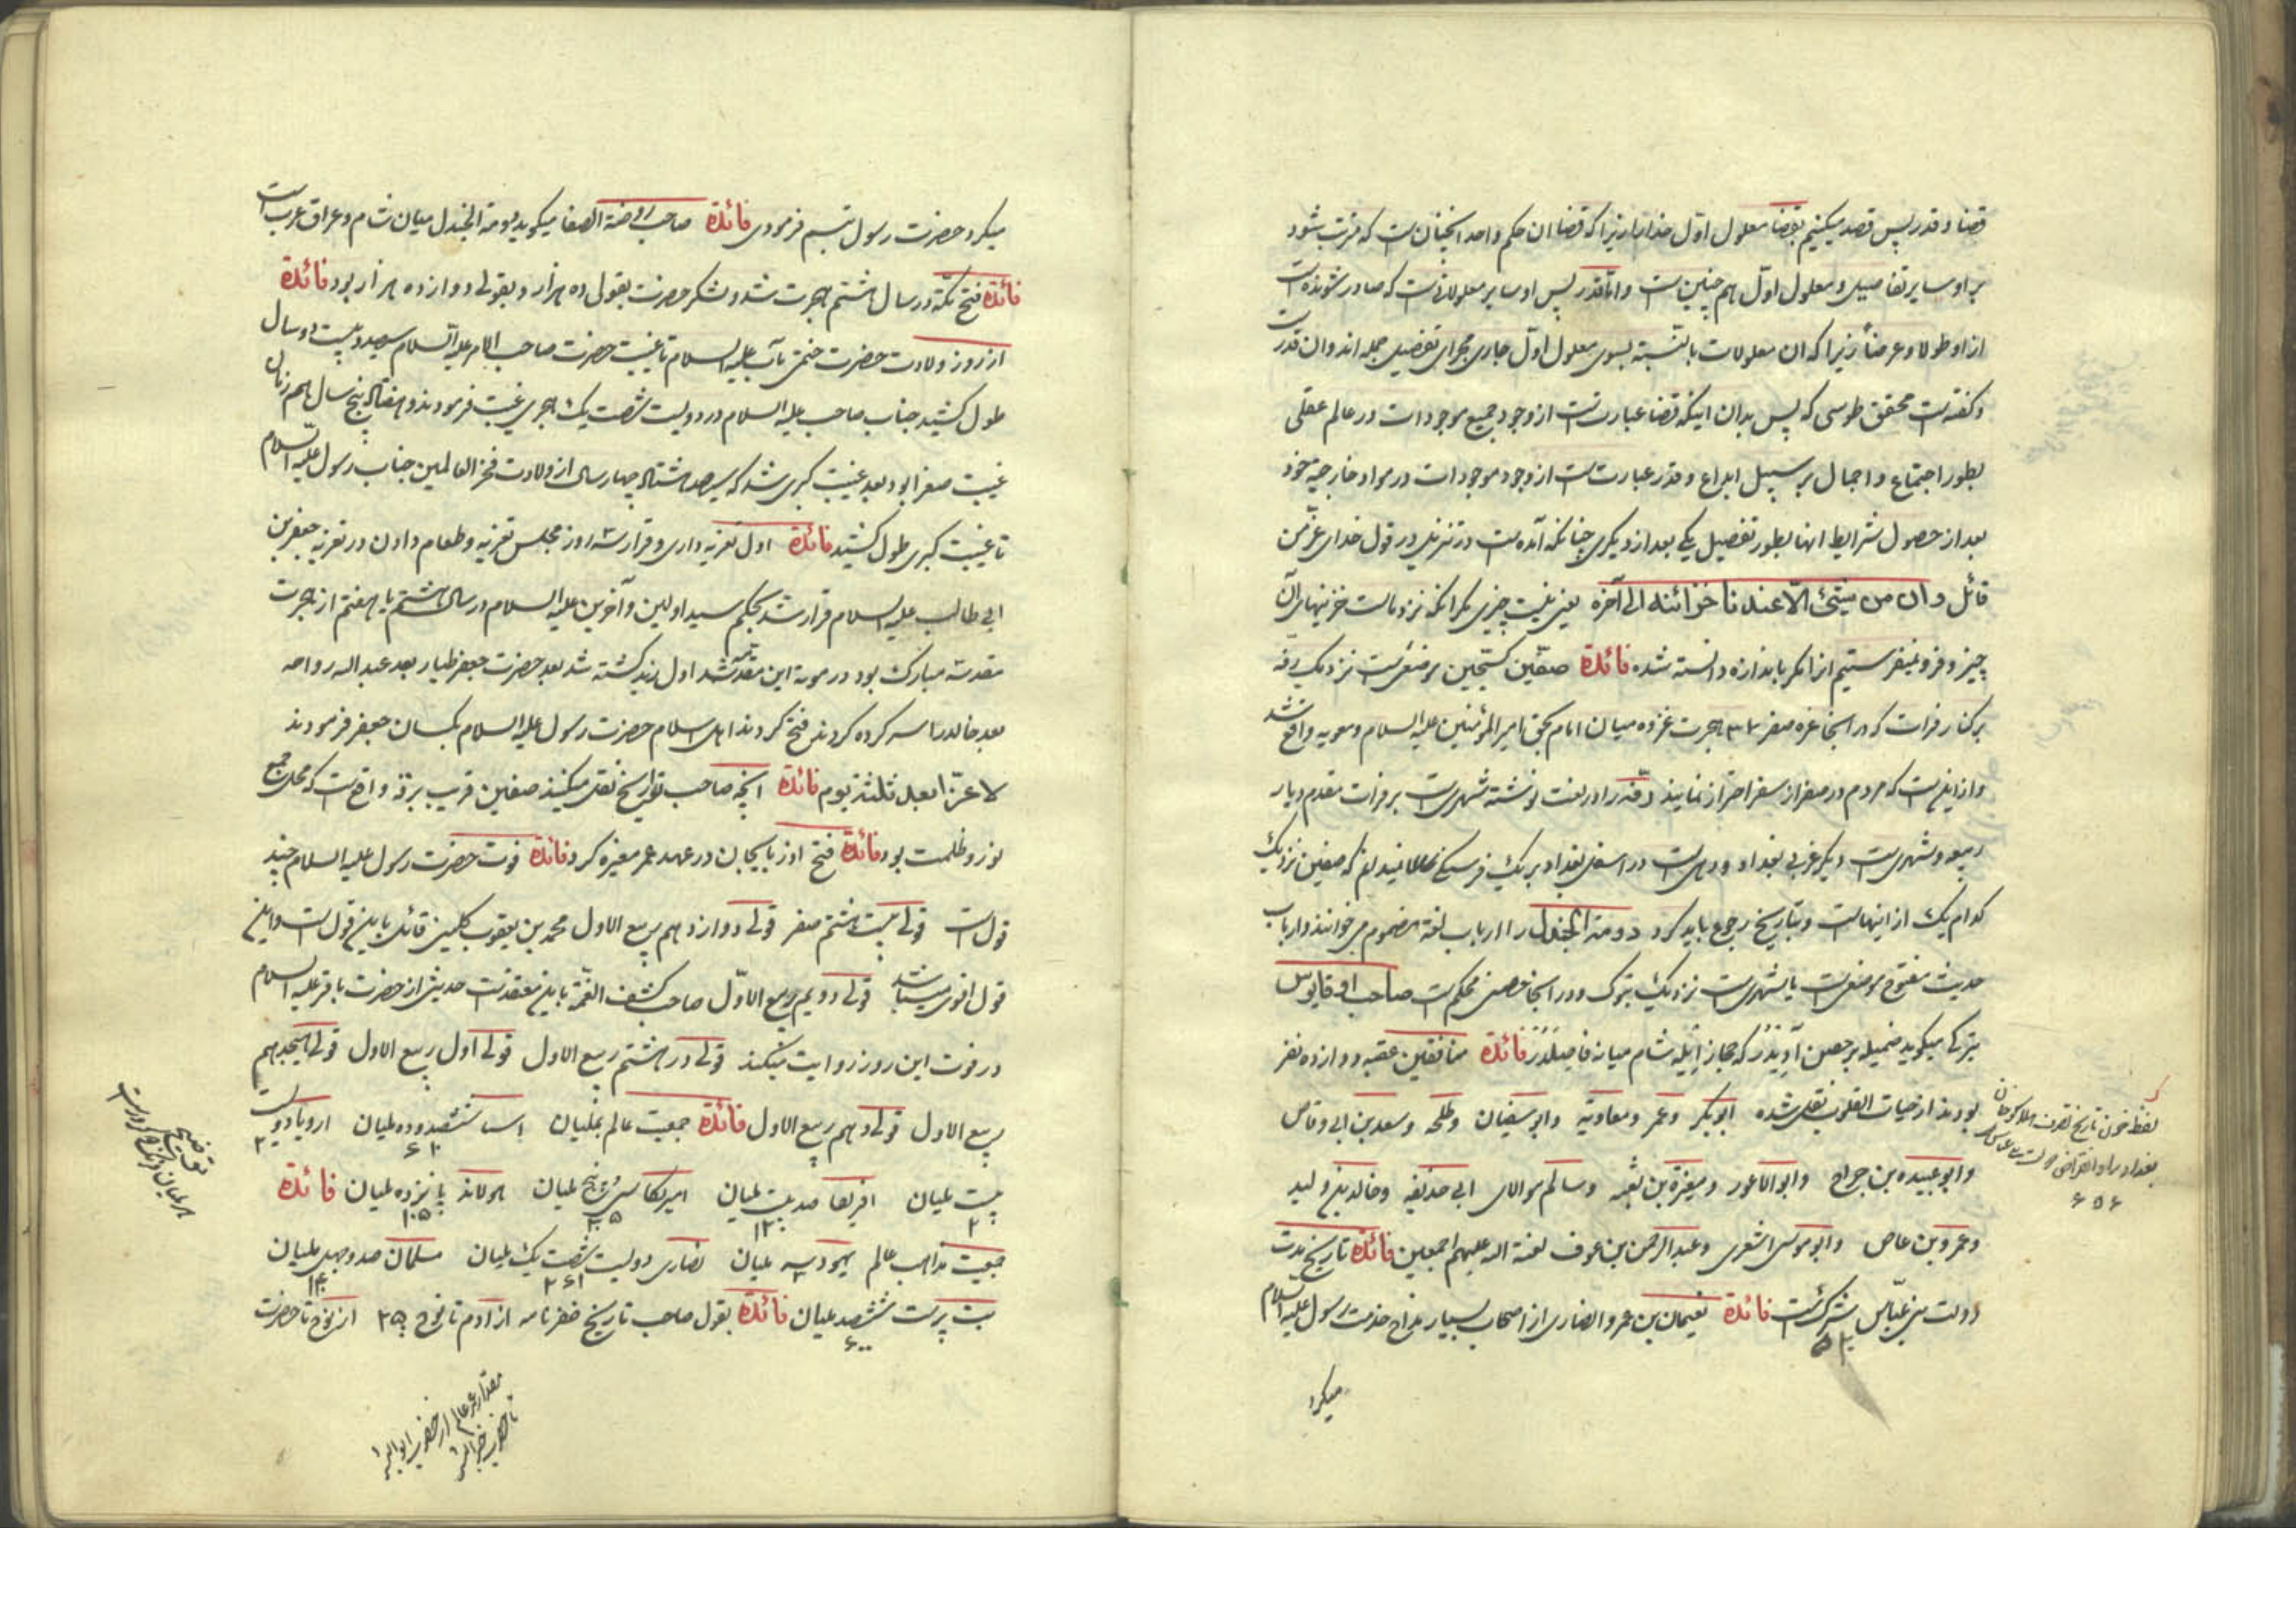 قضا و قدر پس قصد میکنیم بقضا معلول اول خدا را زیرا که قضا ان حکم واحد انچنان است که مرتب شود
بر او سایر تفاصیل و معلول اول هم چنین است و اما قدر پس او سایر معلولاتست که صادر شونده است
از او طولا و عرضاً زیرا که ان معلولات بالنسبة بسوی معلول اول جاری مجرای تفصیل جمله اند و ان قدر است
و گفته است محقق طوسی که پس بدان اینکه قضا عبارتست از وجود جمیع موجودات در عالم عقلی
بطور اجتماع و اجمال بر سبیل ابداع و قدر عبارتست از وجود موجودات در مواد خارجیه خود
بعد از حصول شرایط انها بطور تفصیل یکی بعد از دیگری چنانکه آمده است در تنزیل در قول خدای عز من
قائل و ان من شیئ الا عندنا خزائنه الی آخره یعنی نیست چیزی مگر انکه نزد ماست خزینهای آن
چیز و فرو نمیفرستیم انرا مگر باندازه دانسته شده فائدة صفین کسجین موضعی است نزدیک رقه
بر کنار فرات که در انجا غره صفر ۳۷ هجرت غزوه میان امام بحق امیر المؤمنین علیه السلام و معویه واقع شد
و از اینست که مردم در صفر از سفر احتراز نمایند رقه را در لغت نوشته شهری است بر فرات مقدم دیار
ربیعه و شهری است دیگر غربی بغداد و دهی است در اسفل بغداد بر یک فرسنگی که صفین نزدیک
کدام یک از اینهاست و بتاریخ رجوع باید کرد دومة الجندل را ارباب لغة مضموم می خوانند و ارباب
حدیث مفتوح موضعی است یا شهری است نزدیک تبوک و در انجا حصنی محکم است صاحب اوقیانوس
ترکی میگوید ضمیله بر حصن آدیدر که حجاز ایله شام میانه فاصلدر فائدة منافقین عقبه دوازده نفر
بودند از حیات القلوب نقل شده ابوبکر و عمر و معاویة و ابو سفیان و طلحه و سعد بن ابی وقاص
و ابو عبیده بن جراح و ابو الاعور و مغیرة بن شعبه و سالم موالای ابی حذیفه و خالد بن ولید
و عمرو بن عاص و ابو موسی اشعری و عبد الرحمن بن عوف لعنة اله علیهم اجمعین فائدة تاریخ مدت
دولت بنی عباس فائدة نعیمان بن عمرو انصاری از اصحاب بسیار مزاح خدمت رسول علیه السلام
میکرد
۶۵۶
میکرد حضرت رسول تبسم فرمودی فائدة صاحب روضة الصفا میگوید دومة الجندل میان شام و عراق عرب است
فائدة فتح مکة در سال هشتم هجرت شد و لشکر حضرت بقول ده هزار و بقولی دوازده هزار بود فائدة
از روز ولادت حضرت ختمی مآب علیه السلام تا غیبت حضرت صاحب الامر علیه السلام سیصد و بیست دو سال
طول کشید جناب صاحب علیه السلام در دویست شصت یک هجری غیبت فرمودند و هفتاد پنج سال هم زمان
غیبت صغرا بود بعد غیبت کبری شد که سیصد هشتاد چهار سال از ولادت فخر العالمین جناب رسول علیه السلام
تا غیبت کبری طول کشید فائدة اول تعزیه داری و قرارشد از مجلس تعزیه و طعام دادن در تعزیه جعفر بن
ابی طالب علیه السلام قرار شد بحکم سید اولین و آخرین علیه السلام در سال هشتم یا هفتم از هجرت
مقدسه مبارک بود در موته این مقدمه شد اول زید کشته شد بعد حضرت جعفر طیار بعد عبد اله رواحه
بعد خالد را سر کرده کردند فتح کردند اهل اسلام حضرت رسول علیه السلام بکسان جعفر فرمودند
لا عزاء بعد ثلثة یوم فائدة انچه صاحب تواریخ نقل میکنند صفین قریب برقه واقع است که محل جمع
نور و ظلمت بود فائدة فتح اوزبایجان در عهد عمر مغیره کرد فائدة فوت حضرت رسول علیه السلام چند
قول است قولی بیست هشتم صفر قولی دوازدهم ربیع الاول محمد بن یعقوب کلینی قائل باین قول است و این
قول اقوی میباشد قولی دویم ربیع الاول صاحب کشف الغمة باین معتقدست حدیثی از حضرت باقر علیه السلام
در فوت این روز روایت میکند قولی در هشتم ربیع الاول قولی اول ربیع الاول قولی هیجدهم
ربیع الاول قولی دهم ربیع الاول فائدة جمعیت عالم بملیان اسیا ششصد و ده ملیان اروپا دویست
۶۱۰ ۲
بیست ملیان افریقا صد بیست ملیان امریکا سی پنج ملیان هولاند پانزده ملیان فائدة
۲ ۱۲۰ ۳۵ ۱۰۵
جمعیت مذاهب عالم یهود سه ملیان نصاری دویست شصت یک ملیان مسلمان صد و چهل ملیان
۳ ۲۶۱ ۱۴۰
بت پرست ششصد ملیان فائدة بقول صاحب تاریخ ظفرنامه از ادم تا نوح ۲۵ از نوح تا حضرت
۶۰۰
مقدار عمر عالم از حضرت ابو البشر
تا حضرت خیر البشر